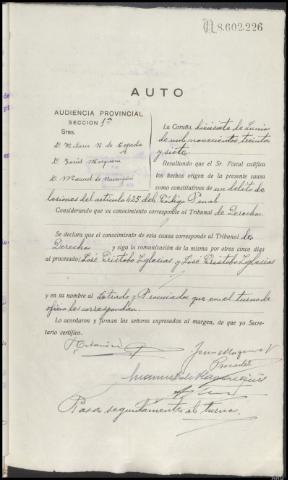 N 8.602.226
AUTO
AUDIENCIA PROVINCIAL
SECCIÓN 1ª
Sres.
D.
D.
D. Manuel
La Coruña, de Junio
de mil novecientos treinta
y siete
Resultando que el Sr. Fiscal califica
los hechos origen de la presente causa
como constitutivos de un delito de
lesiones del artículo 425 del Código Penal
Considerando que su conocimiento corresponde al Tribunal de Derecho.
Se declara que el conocimiento de esta causa corresponde al Tribunal de
Derecho y siga la comunicación de la misma por otros cinco días
al procesado José Cristobo Iglesias y José Cristobo Iglesias
y en su nombre al Letrado y Procurador que en el turno de
oficio les correspondan.
Lo acordaron y firman los señores expresados al margen, de que yo Secre-
tario certifico.
Pasa seguidamente al turno.